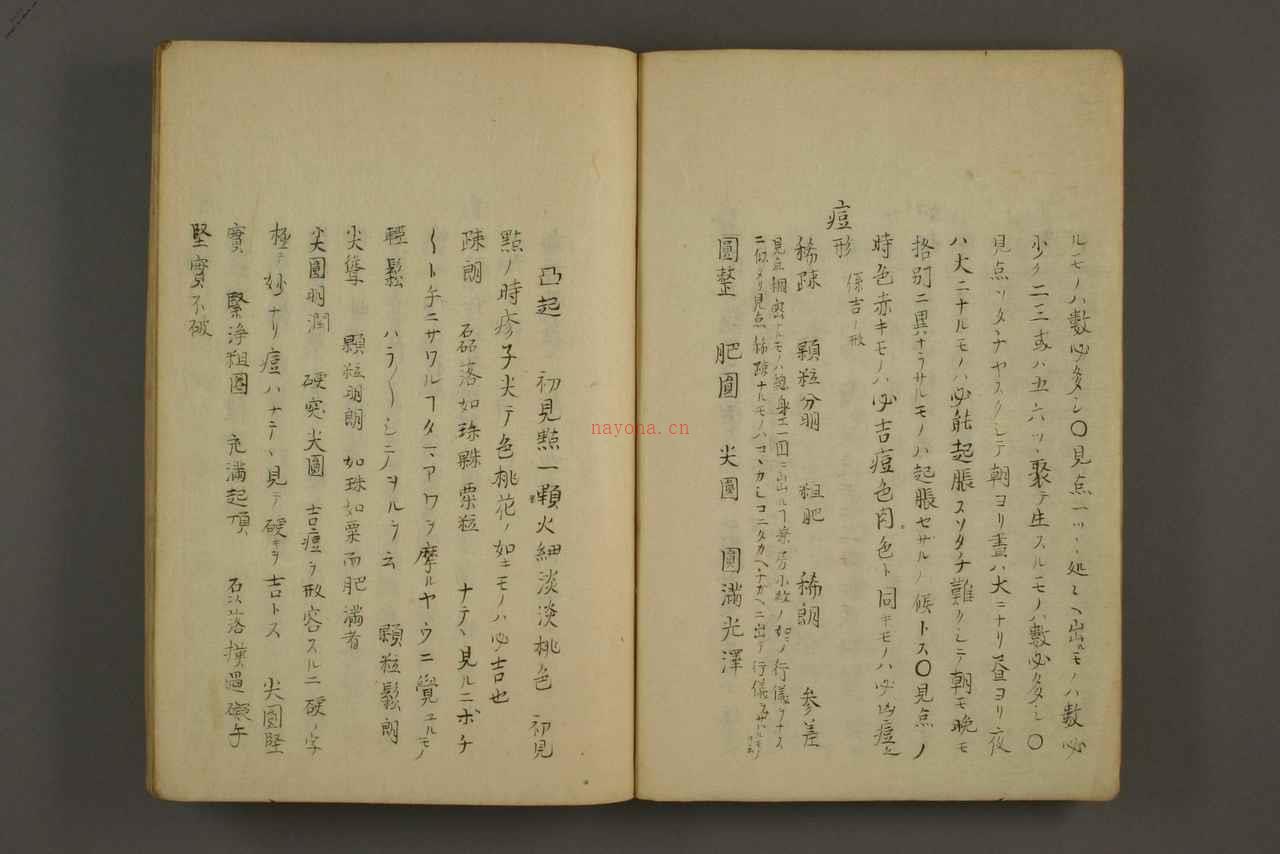 ルモノハ數必多シ〇見点一ツ〻処〻ヘ出ルモノハ数必
少ク二三或ハ五六ツ〻聚テ生スルモノハ數必多シ〇
見点ソタチヤスクシテ朝ヨリ晝ハ大ニナリ昼ヨリ夜
ハ大ニナルモノハ必能起脹スソタチ難クシテ朝モ晩モ
格別ニ異ナラサルモノハ起脹セザルノ候トス〇見点ノ
時色赤キモノハ必吉痘色肉色ト同キモノハ必凶痘也
痘形 係吉ー形
稀疎 顆粒分明 粗肥 稀朗 參差
見点稠密トモノハ惣身土一図ニ出ルヿ 小紋ノ如シノ行儀ヲナス
ニ似タリ見点稀疎ナルモノハコヽカシコニタカヘチガヘニ出テ行儀
圓整 肥圓 尖圓 圓滿光澤
凸起 初見點一顆火細淡淡桃色 初見
點ノ時疹子尖テ色桃花ノ如キモノハ必吉也
疎朗 磊落如珠 粟粒 ナテ〻見ルニボチ
〱ト手ニサワルヿタトヘアワヲ摩ルヤウニ覺ユルモノ
輕鬆 ハラ〱シモノヲルヲ云 顆粒鬆朗
尖聳 顆粒明朗 如珠如粟而肥滿者
尖圓明潤 硬突尖圓 吉痘ヲ形容スルニ硬ノ字
極テ妙ナリ痘ハナテ〻見テ硬キヲ吉トス 尖圓堅
實 緊淨粗圓 充滿起頂 磊落橫過礙手
堅實不破
nayona.cn